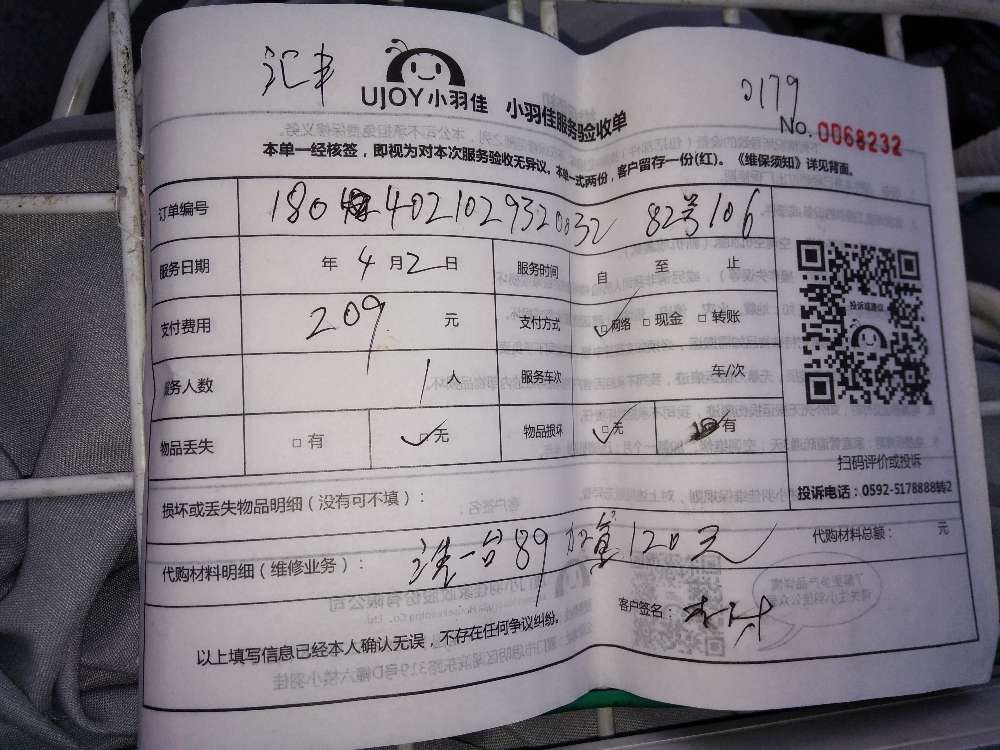 汇丰
UJOY小羽佳 小羽佳服务验收单
0179
No.0068232
本单一经核签，即视为对本次服务验收无异议。本单一式两份，客户留存一份(红)。《维保须知》详见背面。
订单编号 180 4021029320032 82号106
服务日期 年4月2日 服务时间 自 至 止
支付费用 209 元 支付方式 □网络 □现金 □转账
服务人数 1人 服务车次 车/次
物品丢失 □有 □无 物品损坏 □无 有
投诉或建议
扫码评价或投诉
投诉电话：0592-5178888转2
损坏或丢失物品明细（没有可不填）：
代购材料明细（维修业务）： 洗一台89 加氟120元 代购材料总额： 元
以上填写信息已经本人确认无误，不存在任何争议纠纷。 客户签名：